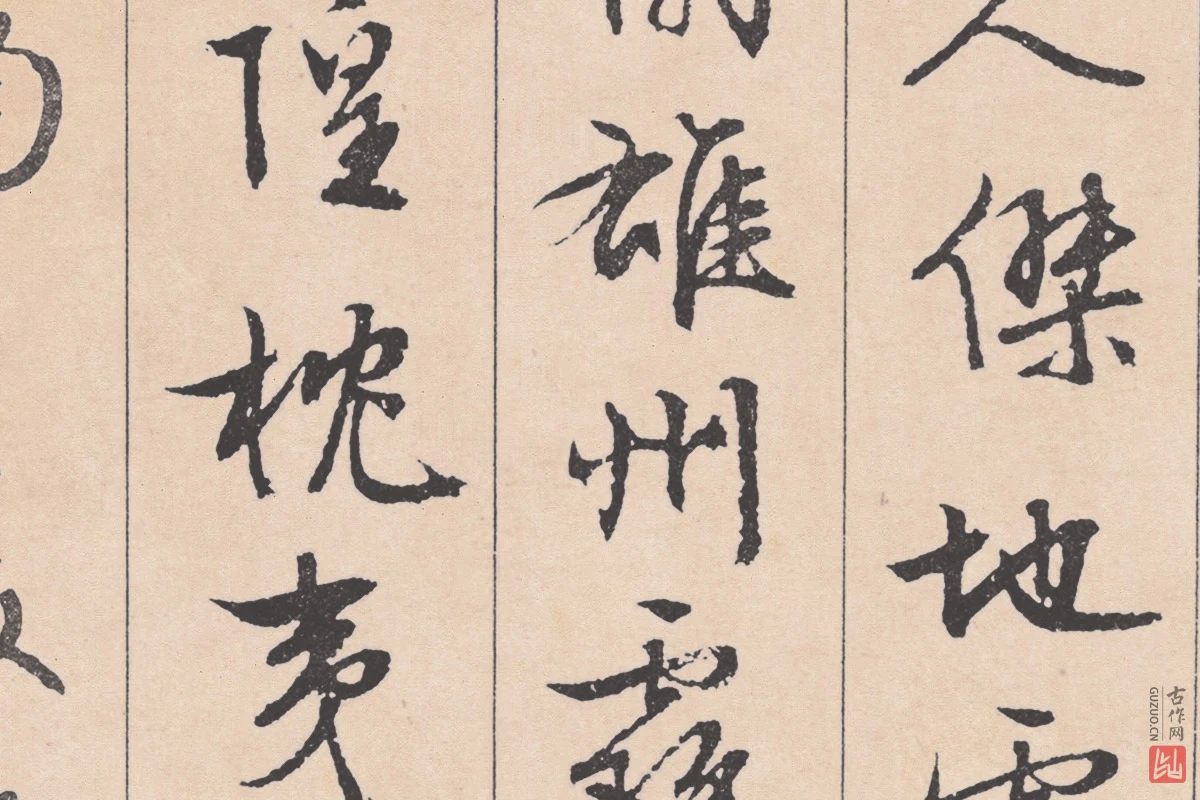 人傑地靈
雄州霧
隍枕夷
古作网
GUZUO.CN